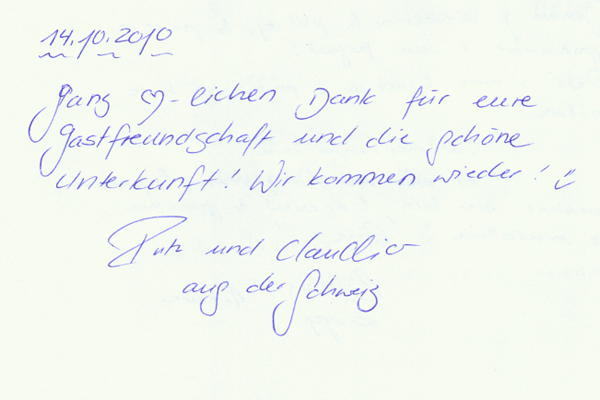 14.10.2010
Ganz ♡-lichen Dank für eure
Gastfreundschaft und die schöne
Unterkunft! Wir kommen wieder!
und Claudia
aus der Schweiz